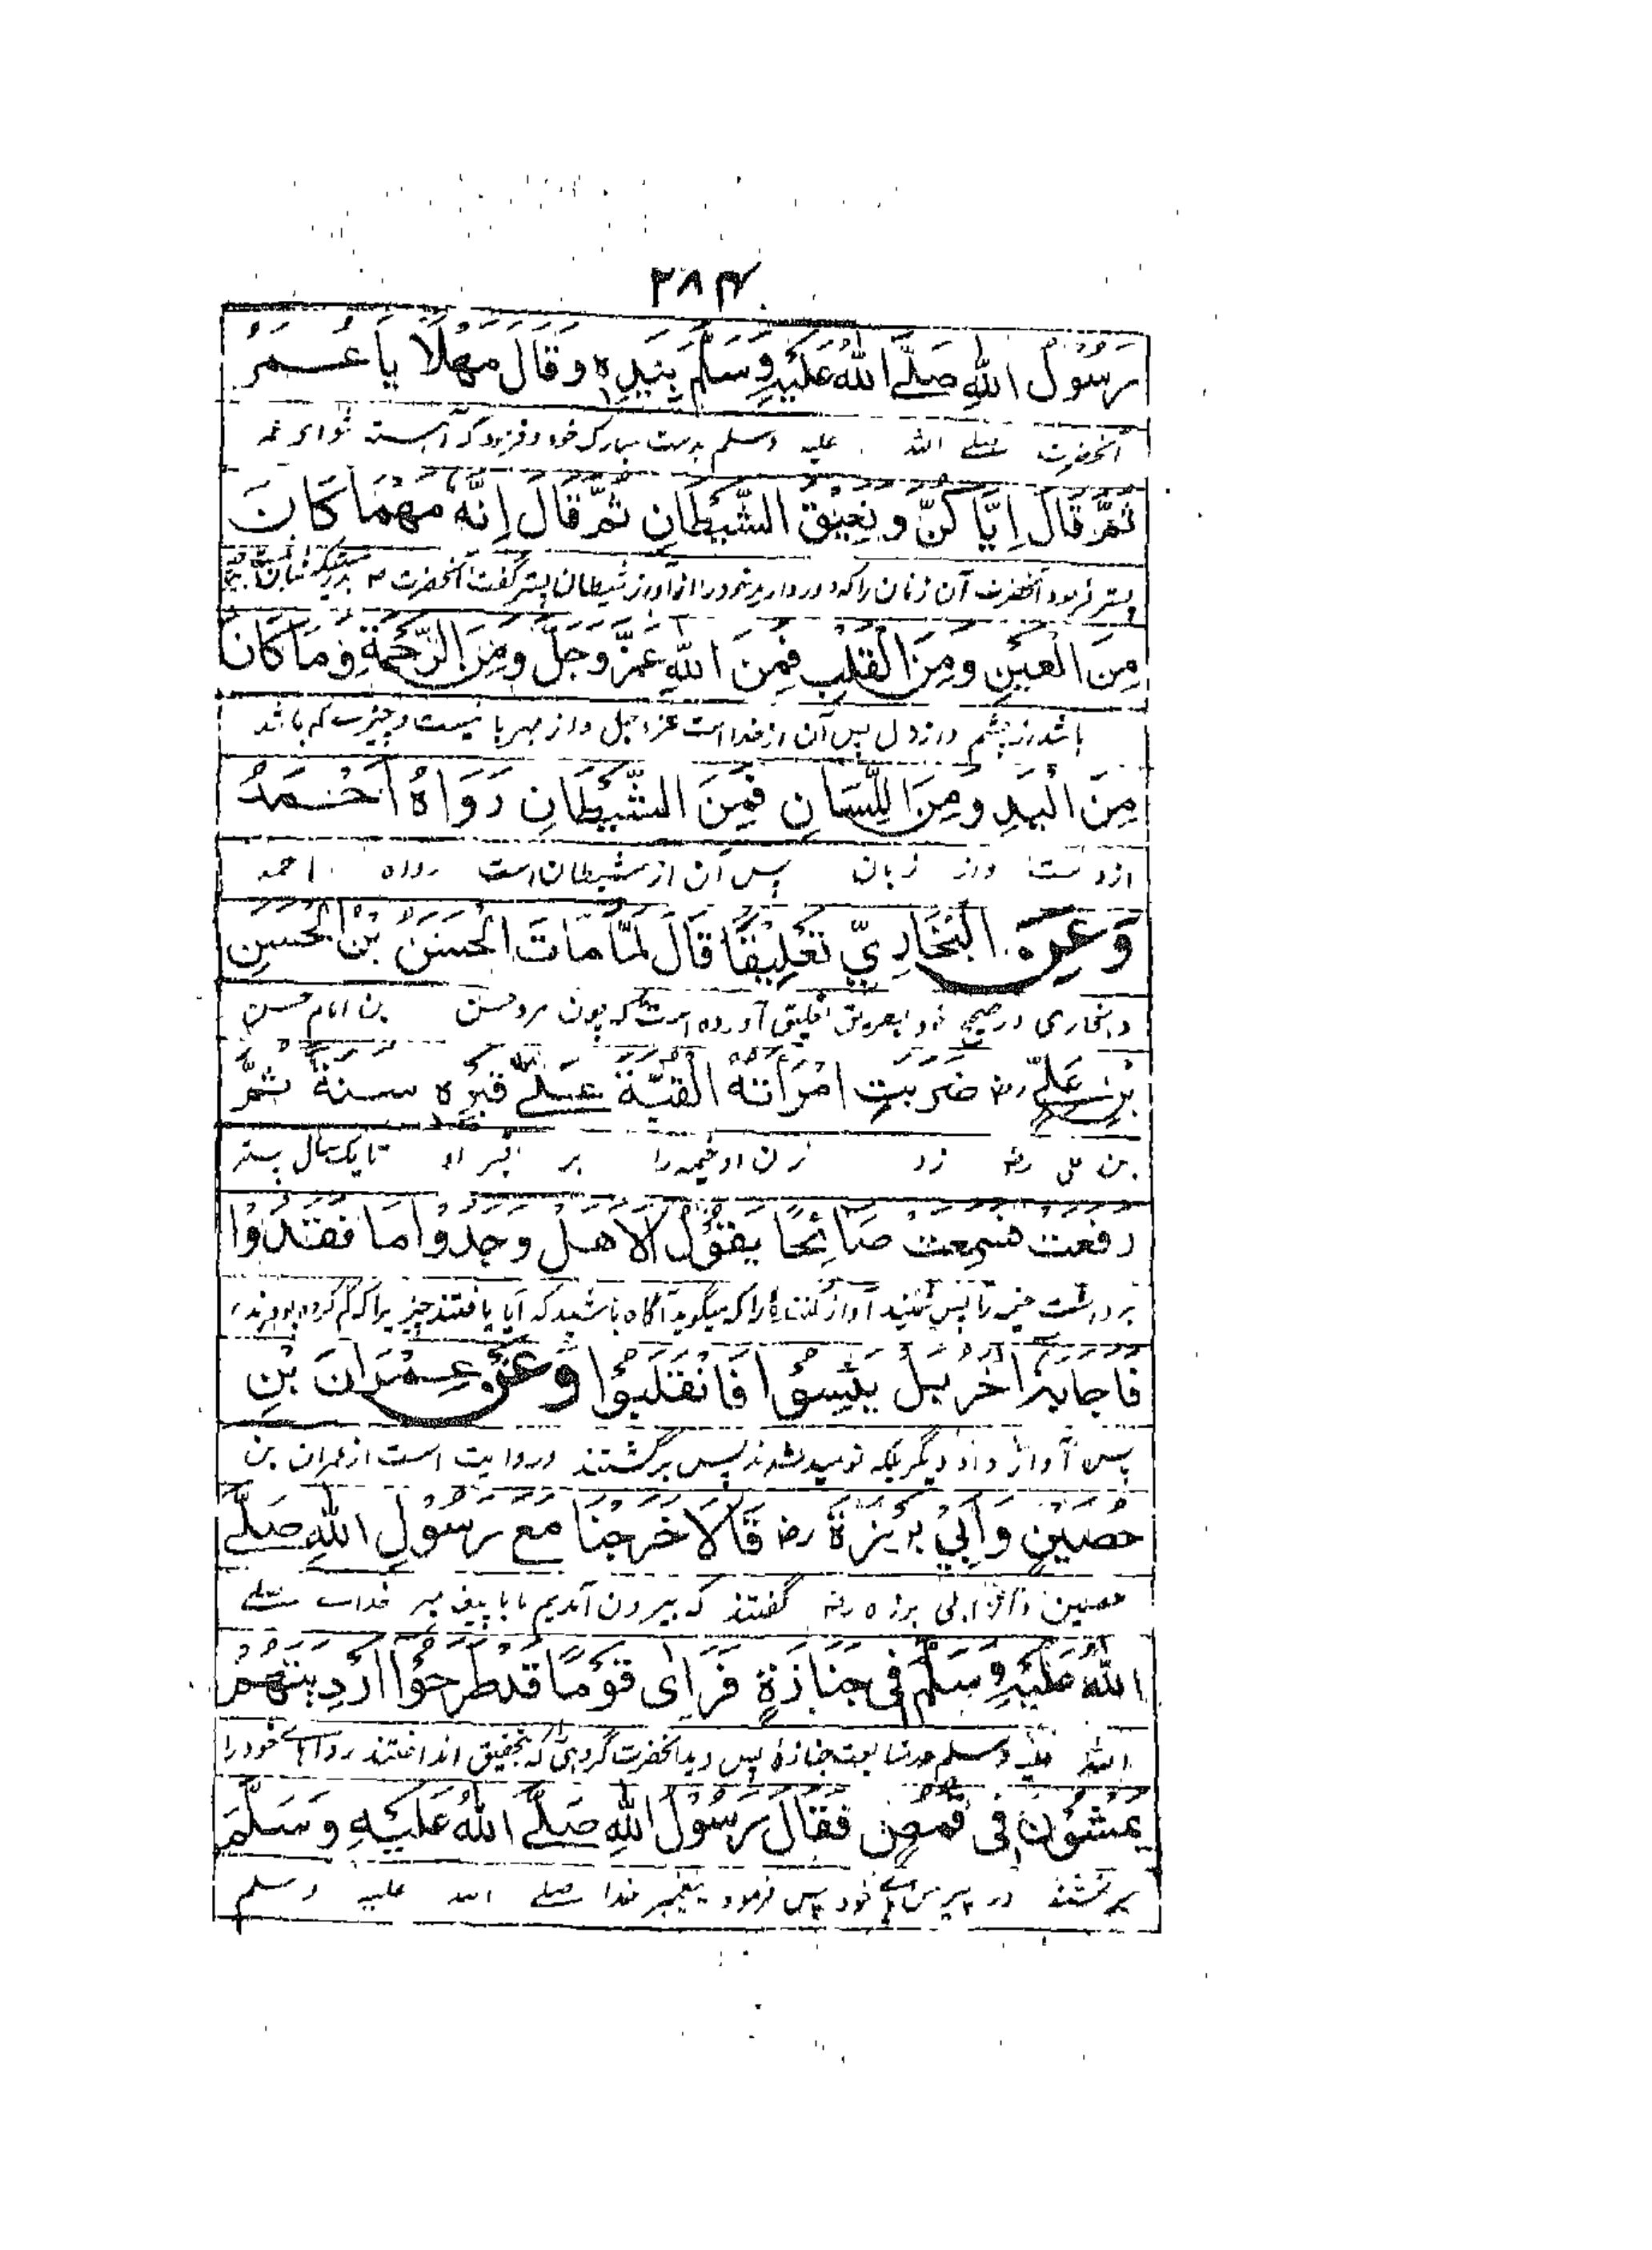 ۲۸۴
رَسُوْلُ اللهِ صَلَّے اللهُ عَلَيْهِ وَسَلَّمَ بِيَدِهٖ وَقَالَ مَهْلًا يَا عُمَرُ
آنحضرت صلے الله علیه وسلم بدست مبارک خود و فرمود که آهسته شو ای عمر
ثُمَّ قَالَ اِيَّاكُنَّ وَنَعِيْقَ الشَّيْطَانِ ثُمَّ قَالَ اِنَّهٗ مَهْمَا كَانَ
پستر فرمود آنحضرت آن زنان را که دور دارید خود را از آواز شیطان پستر گفت آنحضرت
مِنَ الْعَيْنِ وَمِنَ الْقَلْبِ فَمِنَ اللهِ عَزَّ وَجَلَّ وَمِنَ الرَّحْمَةِ وَمَا كَانَ
باشد از چشم و از دل پس آن از خداست عز و جل و از مهربانیست و چیزیکه باشد
مِنَ الْيَدِ وَمِنَ اللِّسَانِ فَمِنَ الشَّيْطَانِ رَوَاهُ اَحْمَدُ
از دست و از زبان پس آن از شیطان است رواه احمد
وَعَنِ الْبُخَارِيِّ تَعْلِيْقًا قَالَ لَمَّا مَاتَ الْحَسَنُ بْنُ الْحَسَنِ
و بخاری در صحیح خود بطریق تعلیق آورده است که چون مرد حسن بن امام حسن
بْنِ عَلِيٍّ رضـ ضَرَبَتِ امْرَأَتُهُ الْقُبَّةَ عَلٰے قَبْرِهٖ سَنَةً ثُمَّ
بن علی رضـ زد زن او خیمه را بر قبر او تا یکسال پستر
رَفَعَتْ فَسَمِعَتْ صَائِحًا يَقُوْلُ اَلَا هَلْ وَجَدُوْا مَا فَقَدُوْا
برداشت خیمه را پس شنید آواز کننده را که میگوید آگاه باشید که آیا یافتند چیزیرا که گم کرده بودند
فَاَجَابَهٗ اٰخَرُ بَلْ يَئِسُوْا فَانْقَلَبُوْا وَعَنْ عِمْرَانَ بْنِ
پس آواز داد دیگر بلکه نومید شدند پس برگشتند و روایت است از عمران بن
حُصَيْنٍ وَاَبِيْ بَرْزَةَ رضـ قَالَا خَرَجْنَا مَعَ رَسُوْلِ اللهِ صَلَّے
حصین و از ابی برزه رضـ گفتند که بیرون آمدیم ما با پیغمبر خدا صلے
اللهُ عَلَيْهِ وَسَلَّمَ فِى جَنَازَةٍ فَرَاٰى قَوْمًا قَدْ طَرَحُوْا اَرْدِيَتَهُمْ
الله علیه وسلم در متابعت جنازه پس دید آنحضرت گروهی را که بتحقیق انداختند رداهاے خود را
يَمْشُوْنَ فِى قُمُصٍ فَقَالَ رَسُوْلُ اللهِ صَلَّے اللهُ عَلَيْهِ وَسَلَّمَ
میرفتند در پیرهنهاے خود پس فرمود پیغمبر خدا صلے الله علیه وسلم